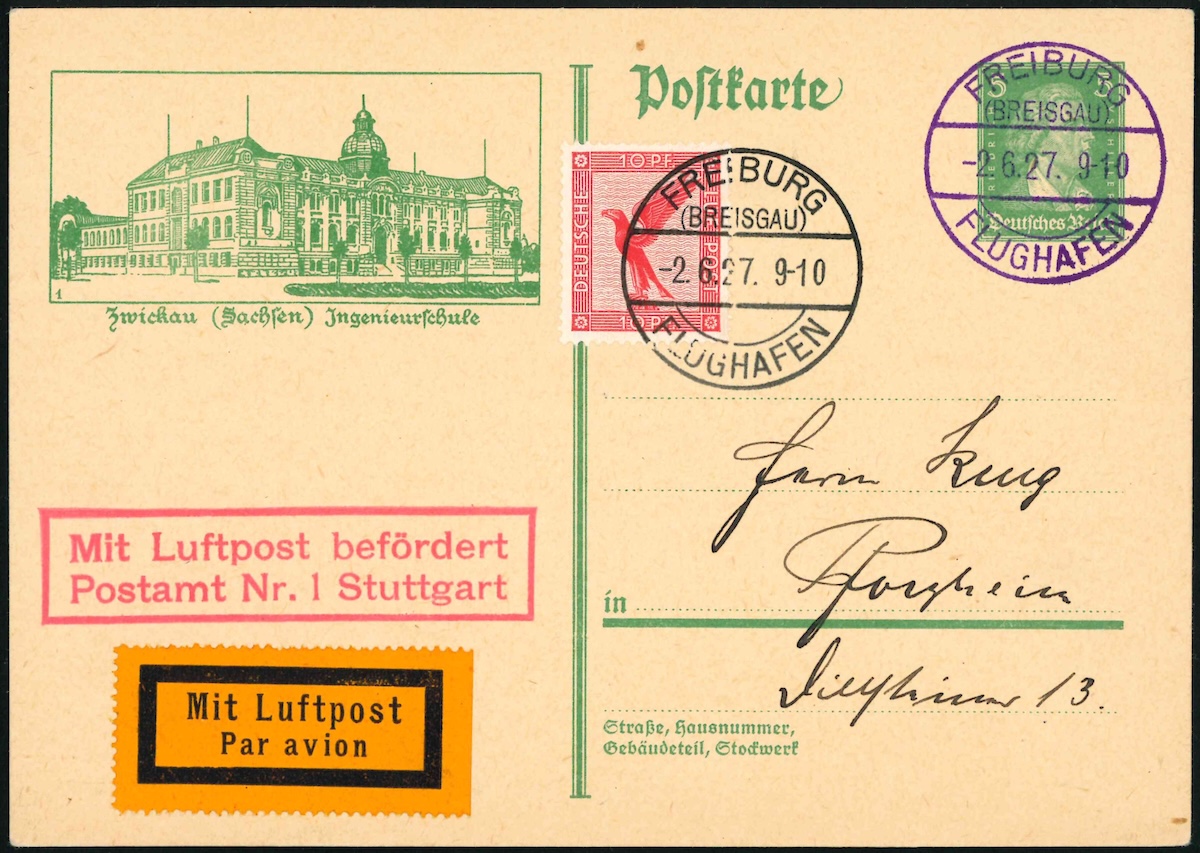 Postkarte
5 5
Deutsches Re
FREIBURG
(BREISGAU)
-2.6.27. 9-10
FLUGHAFEN
10 PF
DEUTSCHE
10 PF
FREIBURG
(BREISGAU)
-2.6.27. 9-10
FLUGHAFEN
1
Zwickau (Sachsen) Ingenieurschule
Mit Luftpost befördert
Postamt Nr. 1 Stuttgart
Mit Luftpost
Par avion
Herrn
Pforzheim
in
13.
Straße, Hausnummer,
Gebäudeteil, Stockwerk